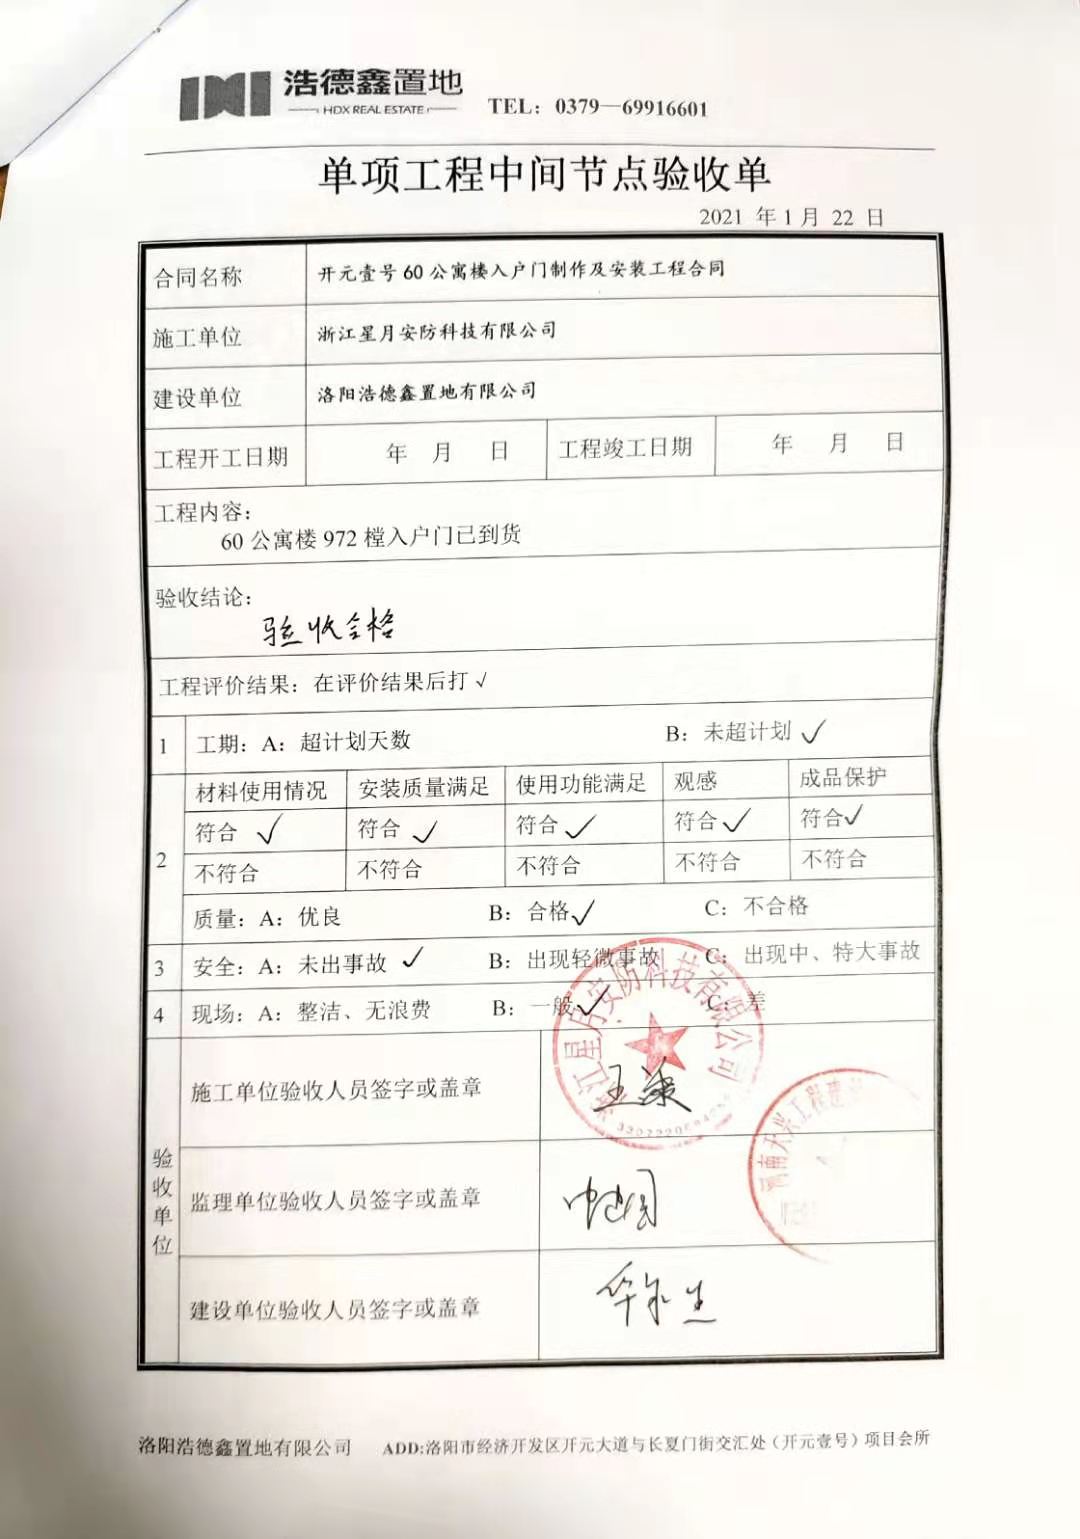 浩德鑫置地
HDX REAL ESTATE
TEL：0379—69916601
单项工程中间节点验收单
2021 年 1 月 22 日
合同名称 开元壹号 60 公寓楼入户门制作及安装工程合同
施工单位 浙江星月安防科技有限公司
建设单位 洛阳浩德鑫置地有限公司
工程开工日期 年 月 日 工程竣工日期 年 月 日
工程内容：
60 公寓楼 972 樘入户门已到货
验收结论：
验收合格
工程评价结果：在评价结果后打 √
1 工期：A：超计划天数 B：未超计划 √
材料使用情况 安装质量满足 使用功能满足 观感 成品保护
符合 √ 符合 √ 符合 √ 符合 √ 符合 √
2
不符合 不符合 不符合 不符合 不符合
质量：A：优良 B：合格 √ C：不合格
3 安全：A：未出事故 √ B：出现轻微事故 C：出现中、特大事故
4 现场：A：整洁、无浪费 B：一般 √ C：差
浙江星月安防科技有限公司
验收单位
施工单位验收人员签字或盖章 王
河南天兴工程建
监理单位验收人员签字或盖章
建设单位验收人员签字或盖章 生
洛阳浩德鑫置地有限公司 ADD:洛阳市经济开发区开元大道与长夏门街交汇处（开元壹号）项目会所